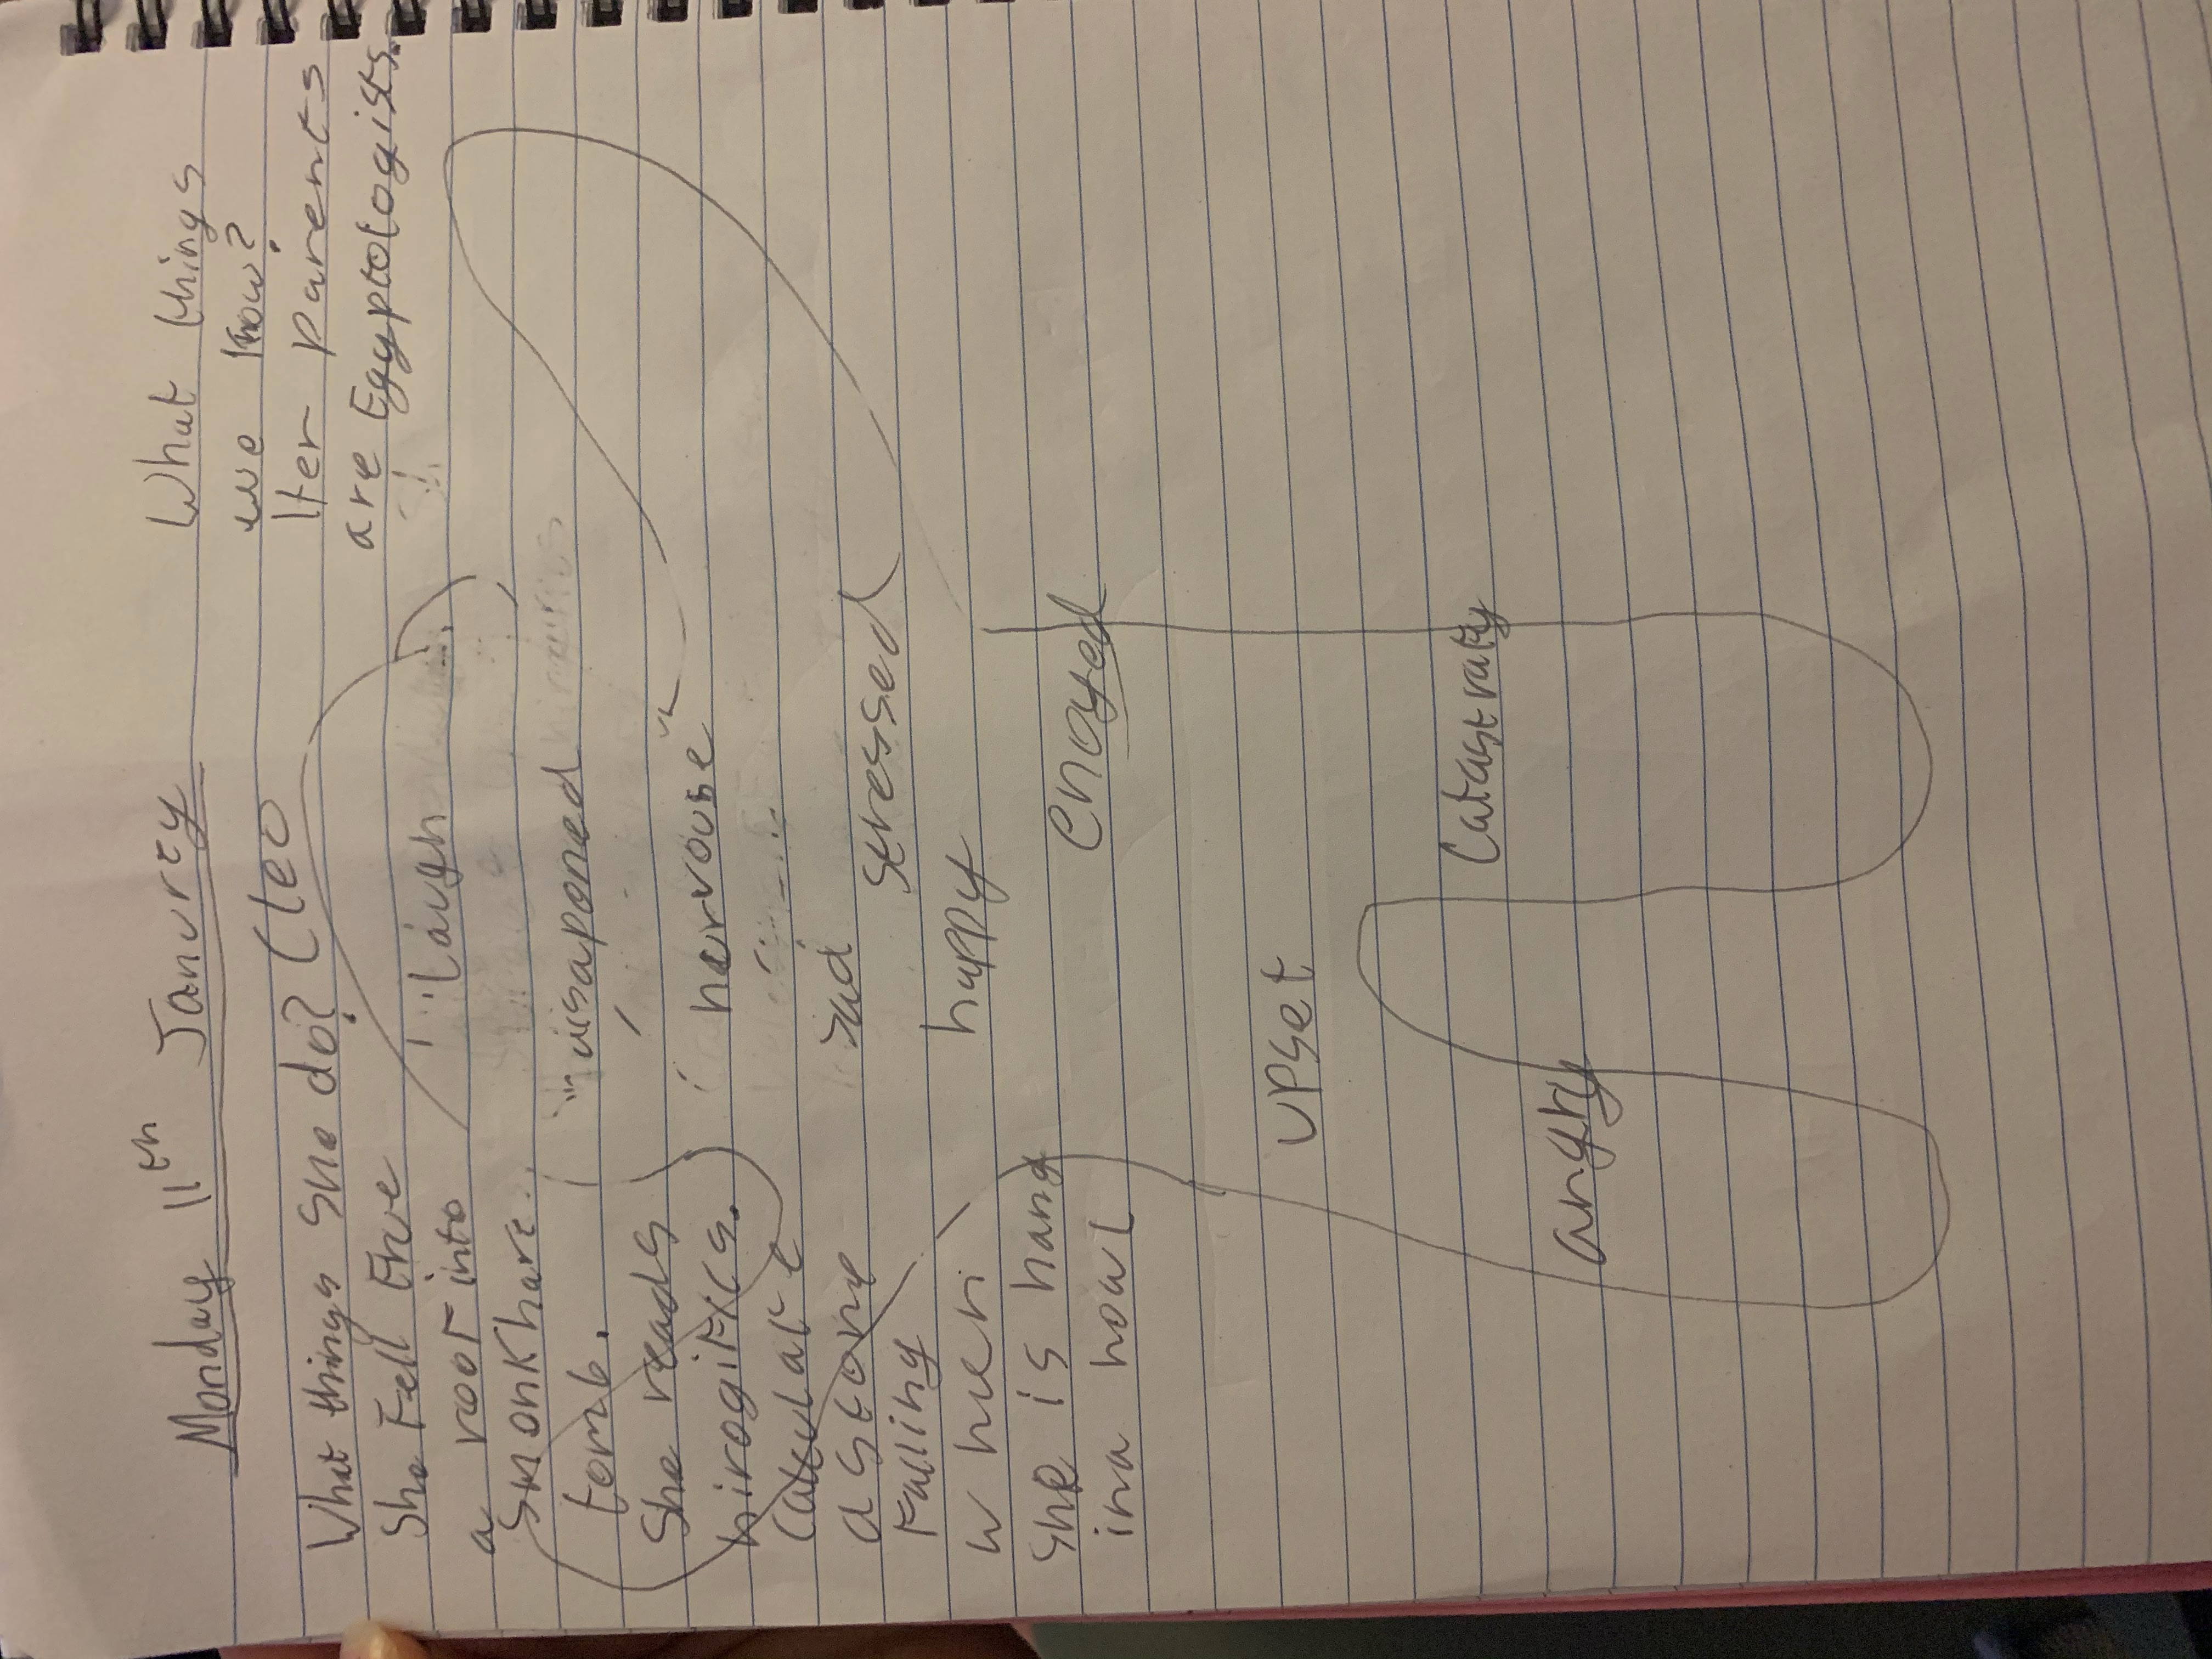 Monday 11th Janurey
What things she do? Cleo
What things
we know?
Her parents
are Egyptologists.
She Fell
a rooF into
Smonkhare
tomb.
She reads
hirogliFics.
Calculate
a stone
Falling
when
she is hang
ina howl
Laugh
disaponed
nervouse
sad
stressed
happy
Enoyed
upset
Catastrafy
angry